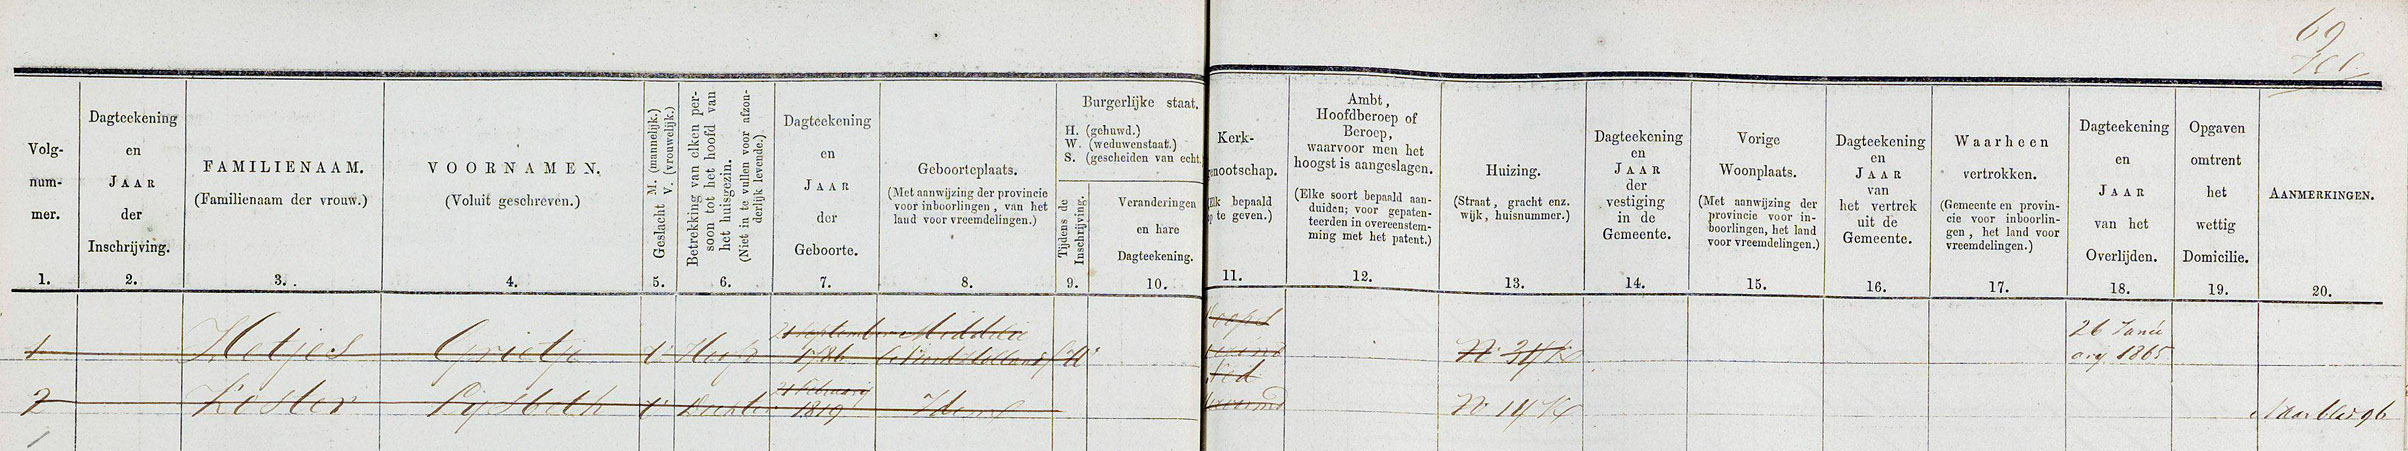 69
Volg-
num-
mer.
1.
Dagteekening
en
JAAR
der
Inschrijving.
2.
FAMILIENAAM.
(Familienaam der vrouw.)
3.
VOORNAMEN.
(Voluit geschreven.)
4.
Geslacht M. (mannelijk.)
V. (vrouwelijk.)
5.
Betrekking van elken per-
soon tot het hoofd van
het huisgezin.
(Niet in te vullen voor afzon-
derlijk levende.)
6.
Dagteekening
en
JAAR
der
Geboorte.
7.
Geboorteplaats.
(Met aanwijzing der provincie
voor inboorlingen, van het
land voor vreemdelingen.)
8.
Burgerlijke staat.
H. (gehuwd.)
W. (weduwenstaat.)
S. (gescheiden van echt.
Tijdens de
Inschrijving.
9.
Veranderingen
en hare
Dagteekening.
10.
Kerk-
nootschap.
bepaald
te geven.)
11.
Ambt,
Hoofdberoep of
Beroep,
waarvoor men het
hoogst is aangeslagen.
(Elke soort bepaald aan-
duiden; voor gepaten-
teerden in overeenstem-
ming met het patent.)
12.
Huizing.
(Straat, gracht enz.
wijk, huisnummer.)
13.
Dagteekening
en
JAAR
der
vestiging
in de
Gemeente.
14.
Vorige
Woonplaats.
(Met aanwijzing der
provincie voor in-
boorlingen, het land
voor vreemdelingen.)
15.
Dagteekening
en
JAAR
van
het vertrek
uit de
Gemeente.
16.
Waarheen
vertrokken.
(Gemeente en provin-
cie voor inboorlin-
gen, het land voor
vreemdelingen.)
17.
Dagteekening
en
JAAR
van het
Overlijden.
18.
Opgaven
omtrent
het
wettig
Domicilie.
19.
AANMERKINGEN.
20.
1 Hetjes Grietje V Hoofd 21 September 1786 Middelie (Noord Holland) W Doops gezind No 34 K 26 Janu ary 1865
2 Koster Lysbeth V Dochter 21 February 1819 Idem Ned Hervormd No 14 K Naar blad 96